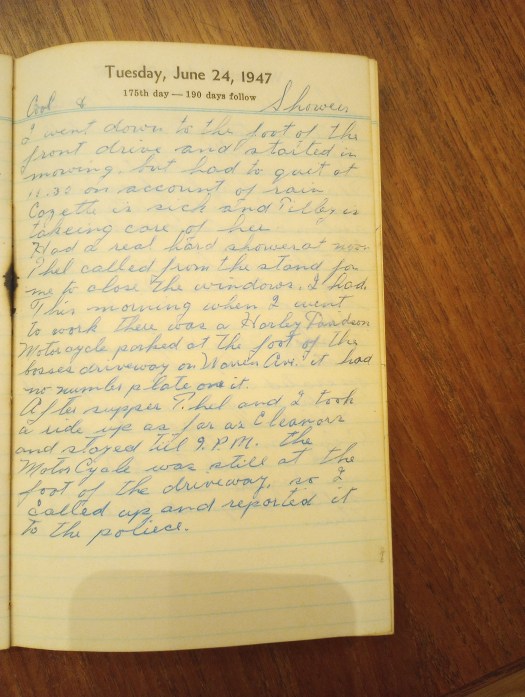 Tuesday, June 24, 1947
175th day — 190 days follow
Cool & Showers
I went down to the foot of the
front drive and started in
mowing, but had to quet at
11.30 on account of rain
Cozette is sick and is
takeing care of her
Had a real hard shower at noon
Thel called from the stand for
me to close the windows. I had.
This morning when I went
to work there was a Harley Davidson
Motorcycle parked at the foot of the
bosses driveway on Warren Ave. it had
no number plate on it.
After supper Thel and I took
a ride up as far as Eleanors
and stayed til 9. P.M. the
MotorCycle was still at the
foot of the driveway, so I
called up and reported it
to the poliece.